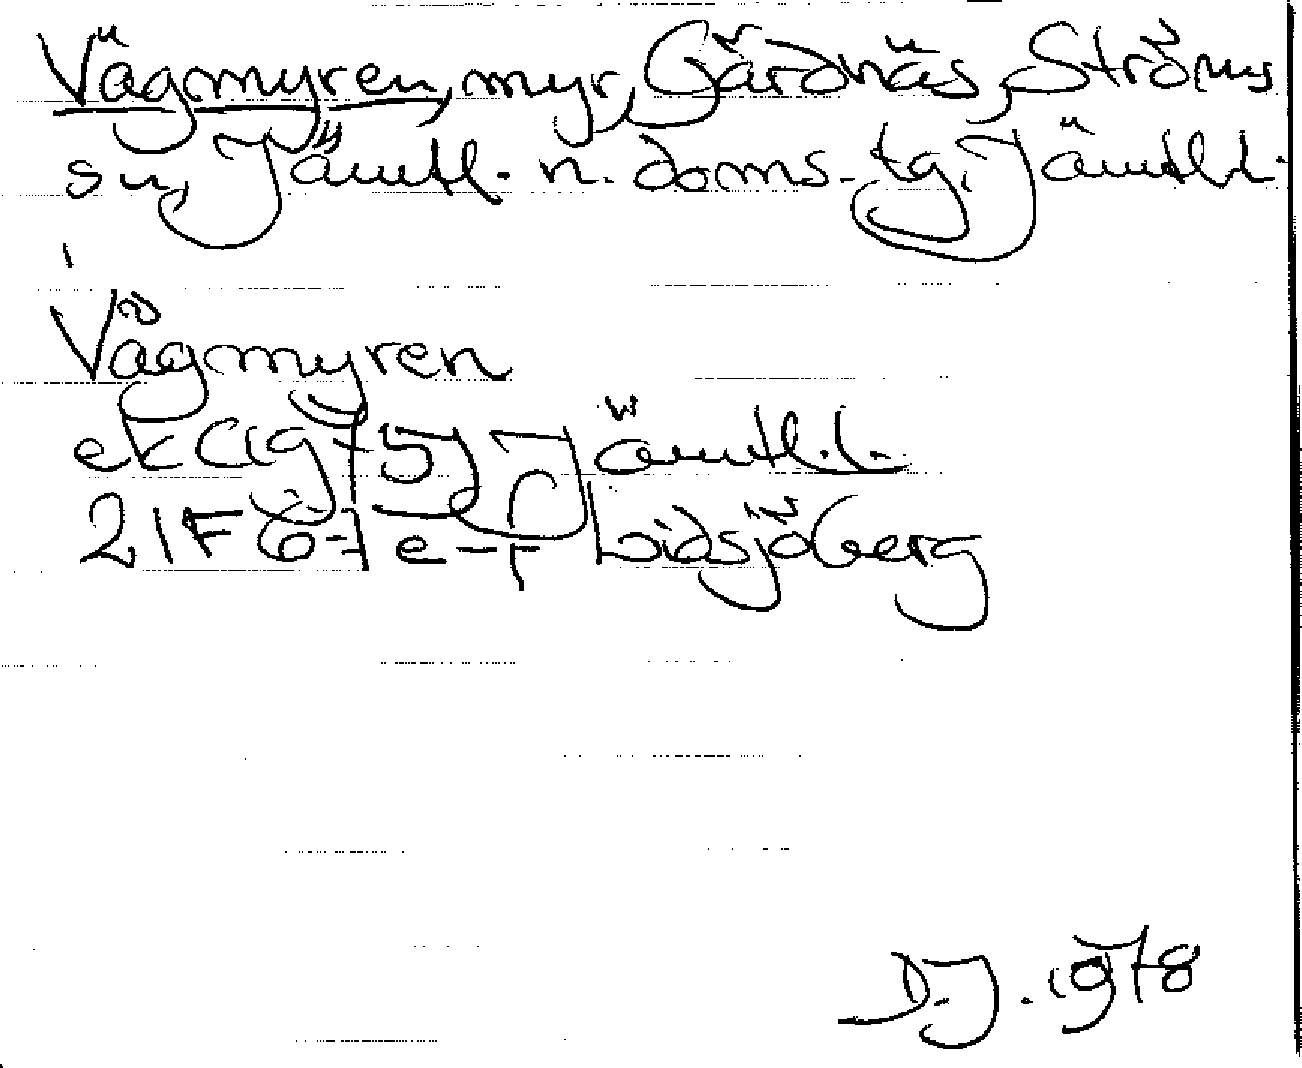 Vägmyren, myr, Gärdnäs, Ströms
sn, Jämtl. n. doms. tg, Jämtl.l.
Vågmyren
ek Cig 75, Jämtl.l.
21F 6-7 e-f Lidsjöberg
D.J. 1978